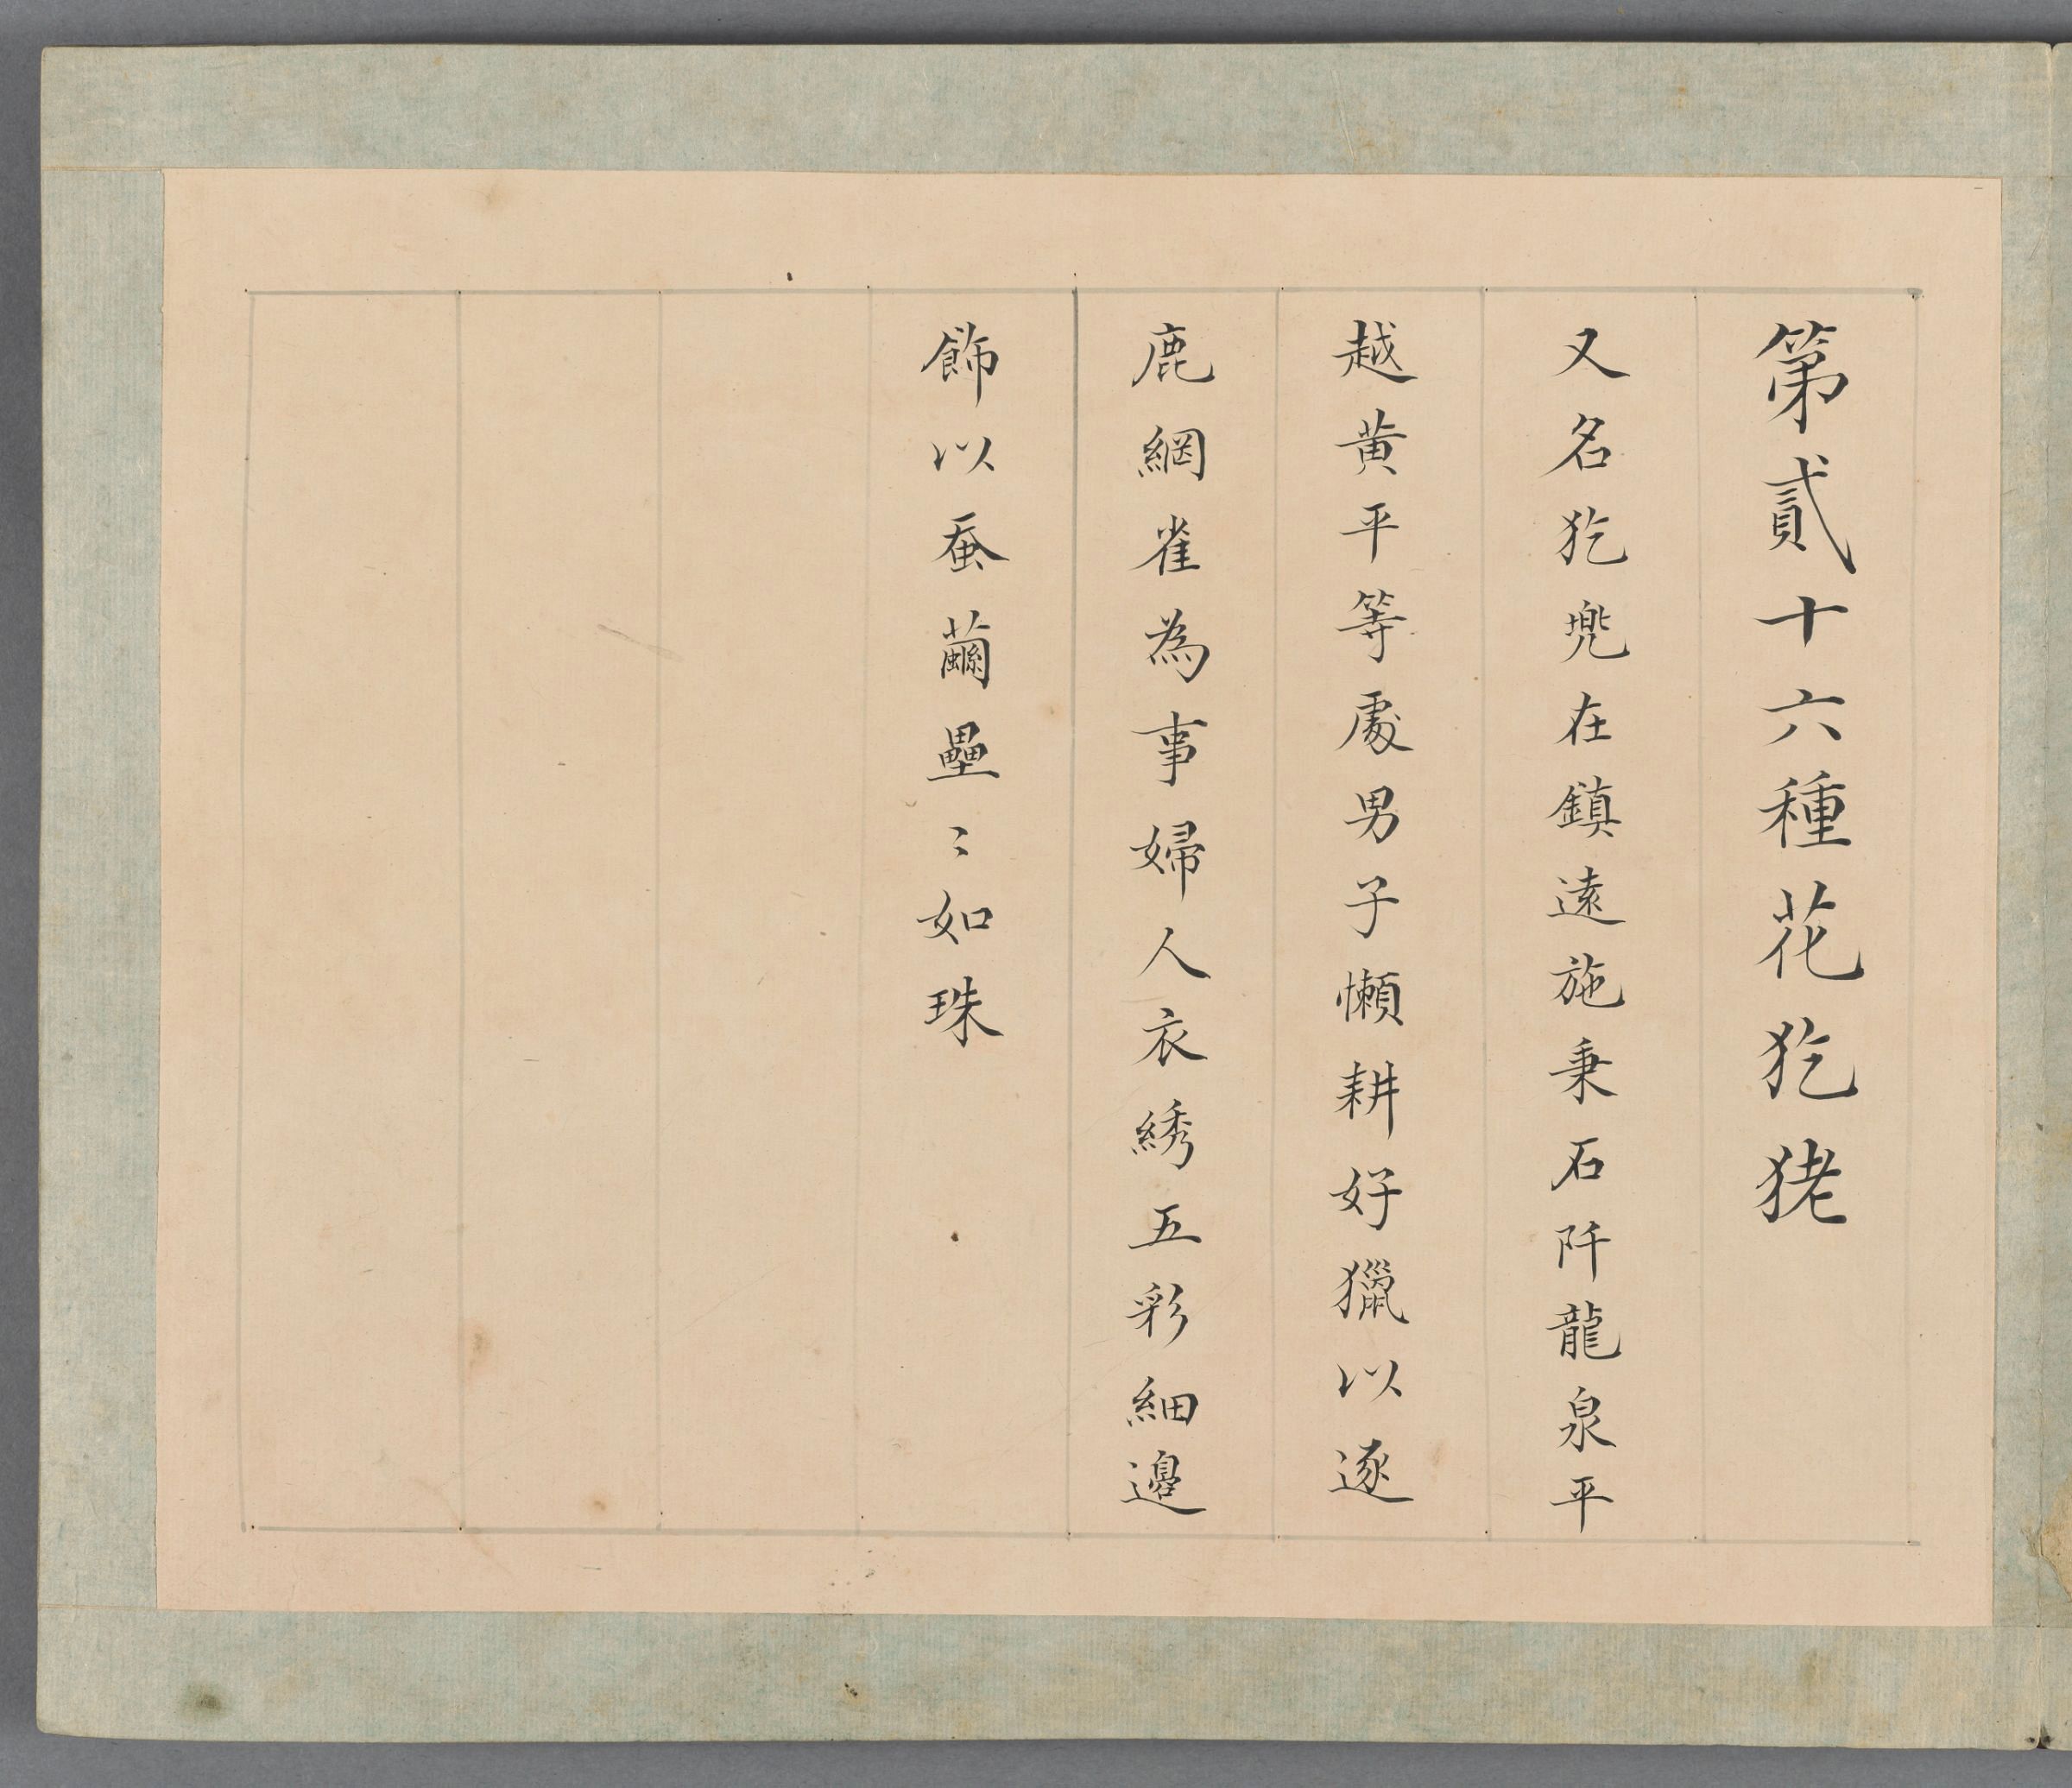 第貳十六種花犵狫
又名犵兠在鎮遠施秉石阡龍泉平
越黄平等處男子懶耕好獵以逐
鹿網雀為事婦人衣綉五彩細邊
飾以蚕繭壘〻如珠